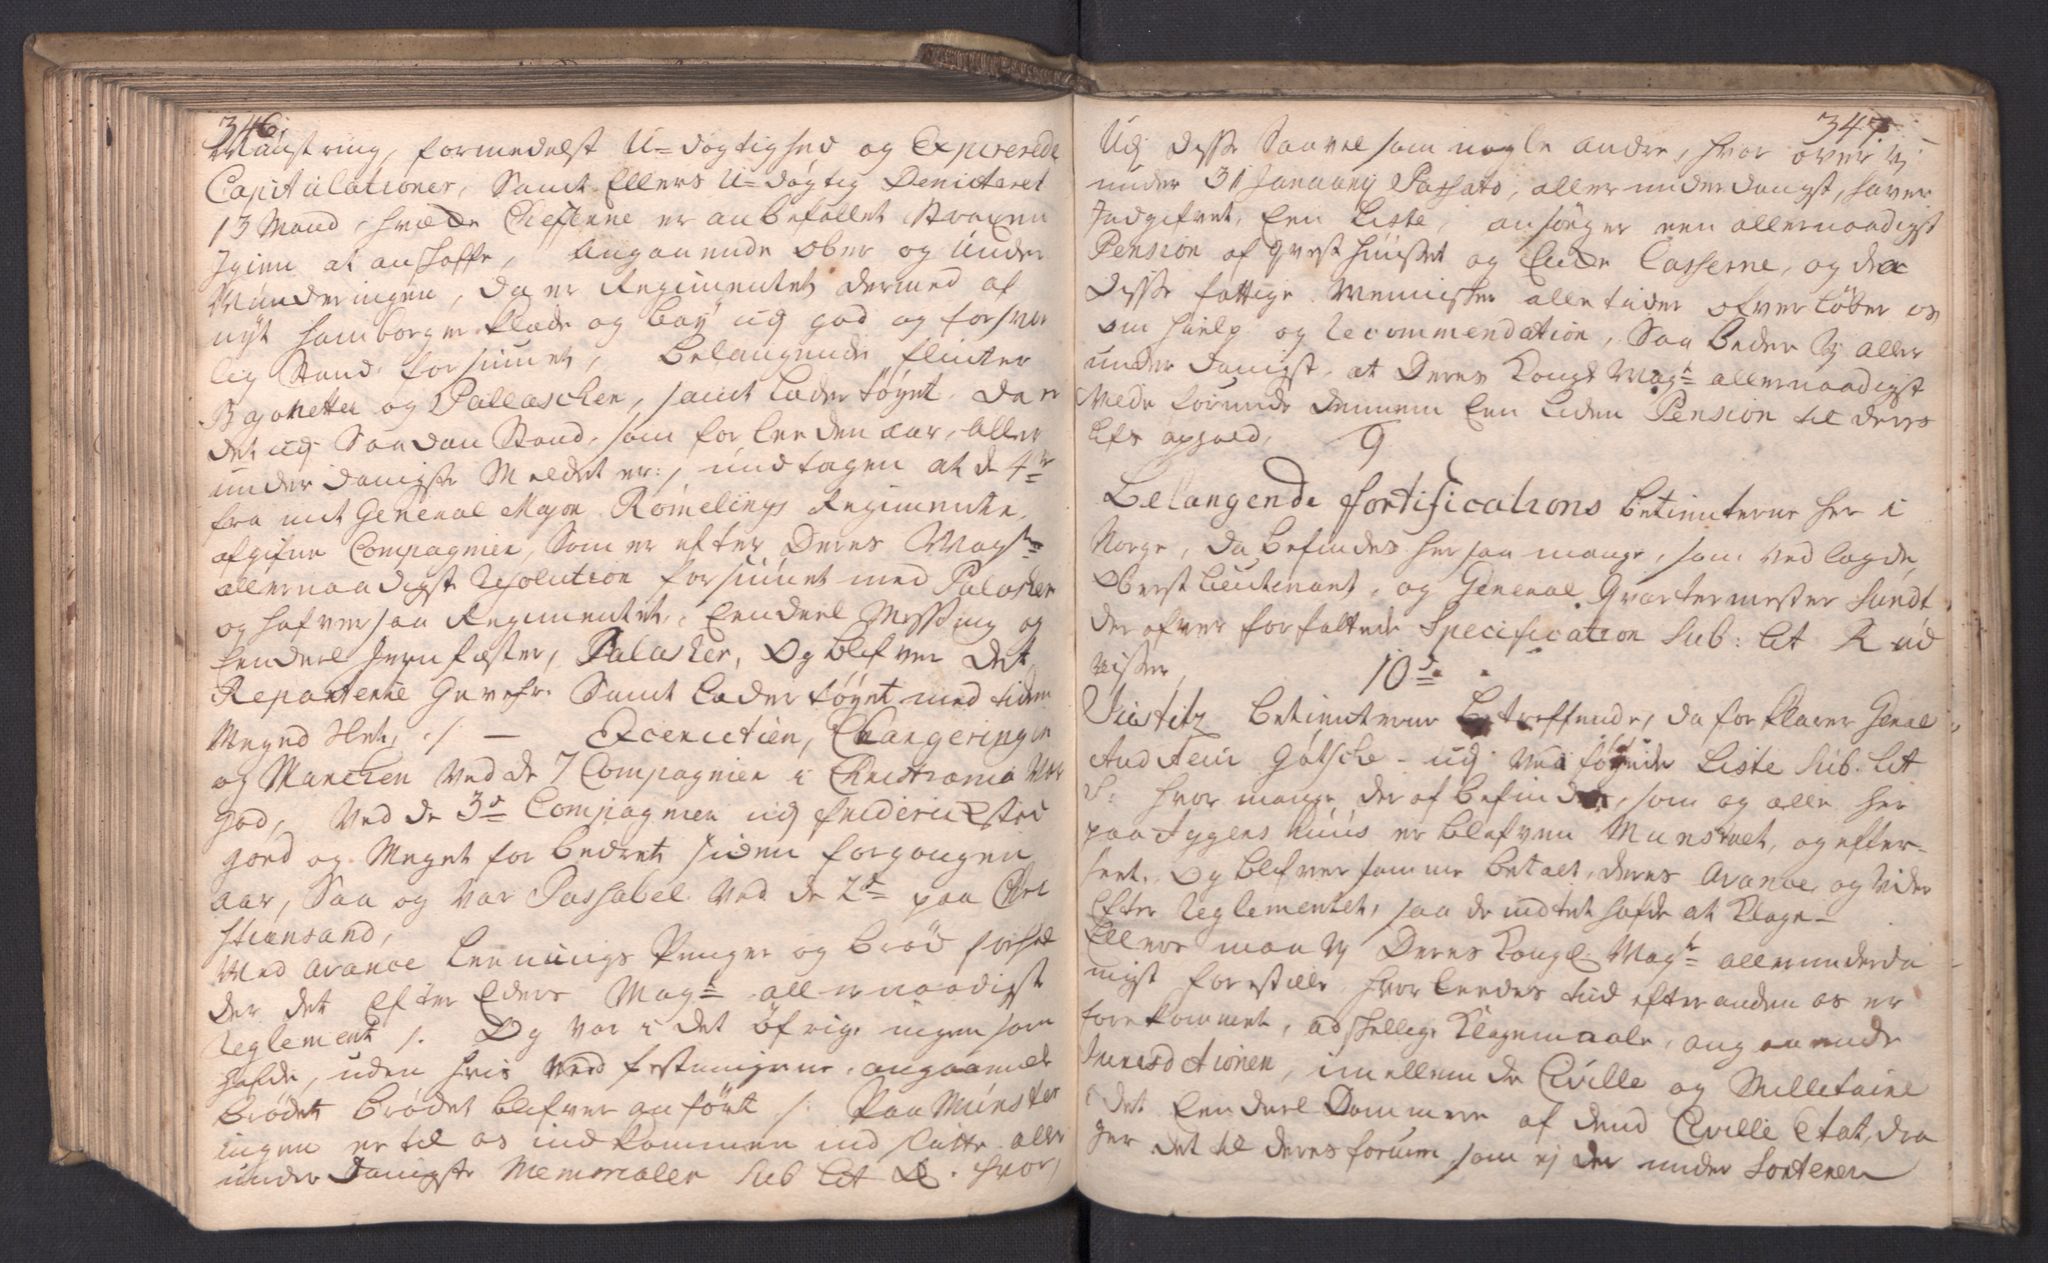 346.
Mønstring, formedelst U-dögtighed og Expirerede
Capitulationer, Samt Ellers U-dögtig Demitteret
13 Mand, hvilke Cheferne er anbefallet Straxen
Igien at anskaffe, Angaaende Ober og Under
Munderingen, da er Regimentet dermed af
nyt hamborger Klæde og boy udj god og forsvar
lig Stand forsiunet, Belangende flinter
Bajonetter og Pallascher, samt Lædertöyet, da er
det udj Saadan Stand, som forleeden aar, aller
underdanigste Meldet er:, undtagen at de 4re
fra mit General Major Römelings Regimente,
afgifne Compagnier, Som er efter Deres Mayts
allernaadigste Resolution forsiunet med Palasker
og hafver saa Regimentet, Eendeel Messing og
Eendeel Jernfæster, Palasker, Og blefver det
Reparerte Gevehr Samt Lædertöyet med tiden
Megned slet, ./. — Excercitien, Chargeringen
og Marchen ved de 7 Compagnier i Christiania Var
god, Ved de 3de Compagnier udj Friderichstad
goed og Meget forbedret siden forgangen
aar, Saa og var Passabel ved de 2de paa Chri
stiansand,
Med avance Leenings Penger og Bröd forhol
der det Efter Eders Mayts allernaadigste
Reglement /. Og var i det öfrige ingen som
hafde, uden hvis ved festningerne, angaaende
brödet brödet blefver anfört /. Paa Mønster
ingen er til os indkommen indsluttet aller
underdanigste Memorialer Sub Lit Q. hvor,
347
Udj disse Saavel som nogle andre, hvor over vj
under 31 January Passato, allerunderdanigst, haver
Indgifvet, Een Liste, ansöger een allernaadigst
Pension af qvesthuuset og Ende Casserne, og da
disse fattige Mennisker alle tider ofverlöber os
om hielp og Recommendation, Saa Beder Vj aller
underdanigst, at Deres Kongl Mayt allernaadigst
Vilde forunde dennem Een Liden Pension til deres
Lifs ophold,
9
Belangende Fortifications Betienterne her i
Norge, da befindes her saa mange, som vedlagde
Oberst Leutenant, og General Qvartermester Sundt
der ofver forfattede Specification Sub: Lit R ud
viser,
10de
Justitz Betienterne Betreffende, da forklarer Genal
Auditeur Götsche udj Vedföyede Liste Sub. Lit
S: hvor mange der af befindes, som og alle her
paa Aggers huus er blefven Munstret, og efter-
seet. Og blefver samme betalt, deres Avance og vider
Efter Reglementet, saa de indtet hafde at Klage-
Ellers maa Vj Deres Kongl: Mayt allerunderda
nigst forestille hvorledes tiid efter anden os er
forekommet, adskellige Klagemaale, angaaende
Jurisdictionen, imellem de Civille og Millitaire
i det Eendeel Dommere af dend Civille Etat, dra
ger det til deres forum som ej der under Sorterer